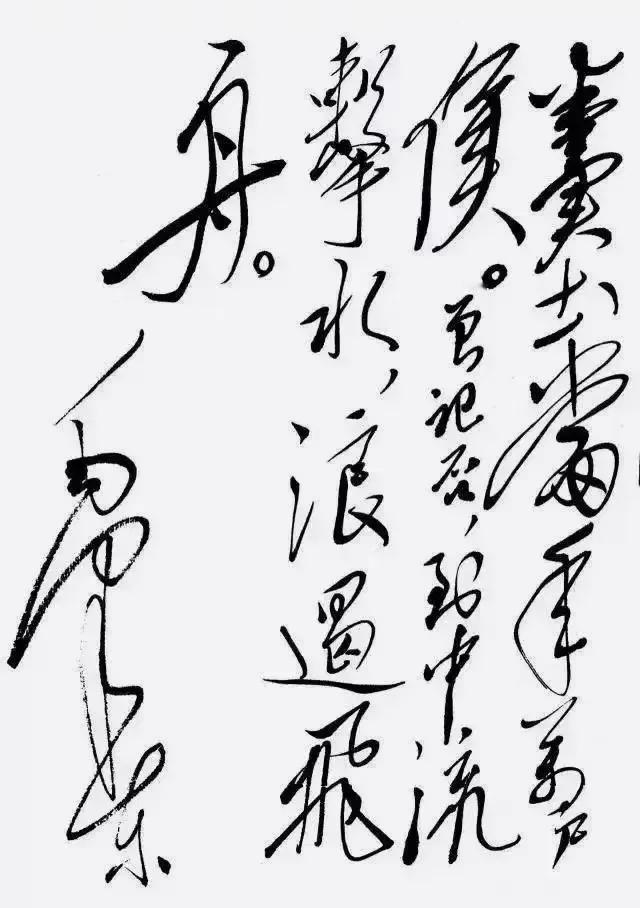 糞土當年萬户
侯。曾記否，到中流
擊水，浪遏飛
舟。
毛澤東